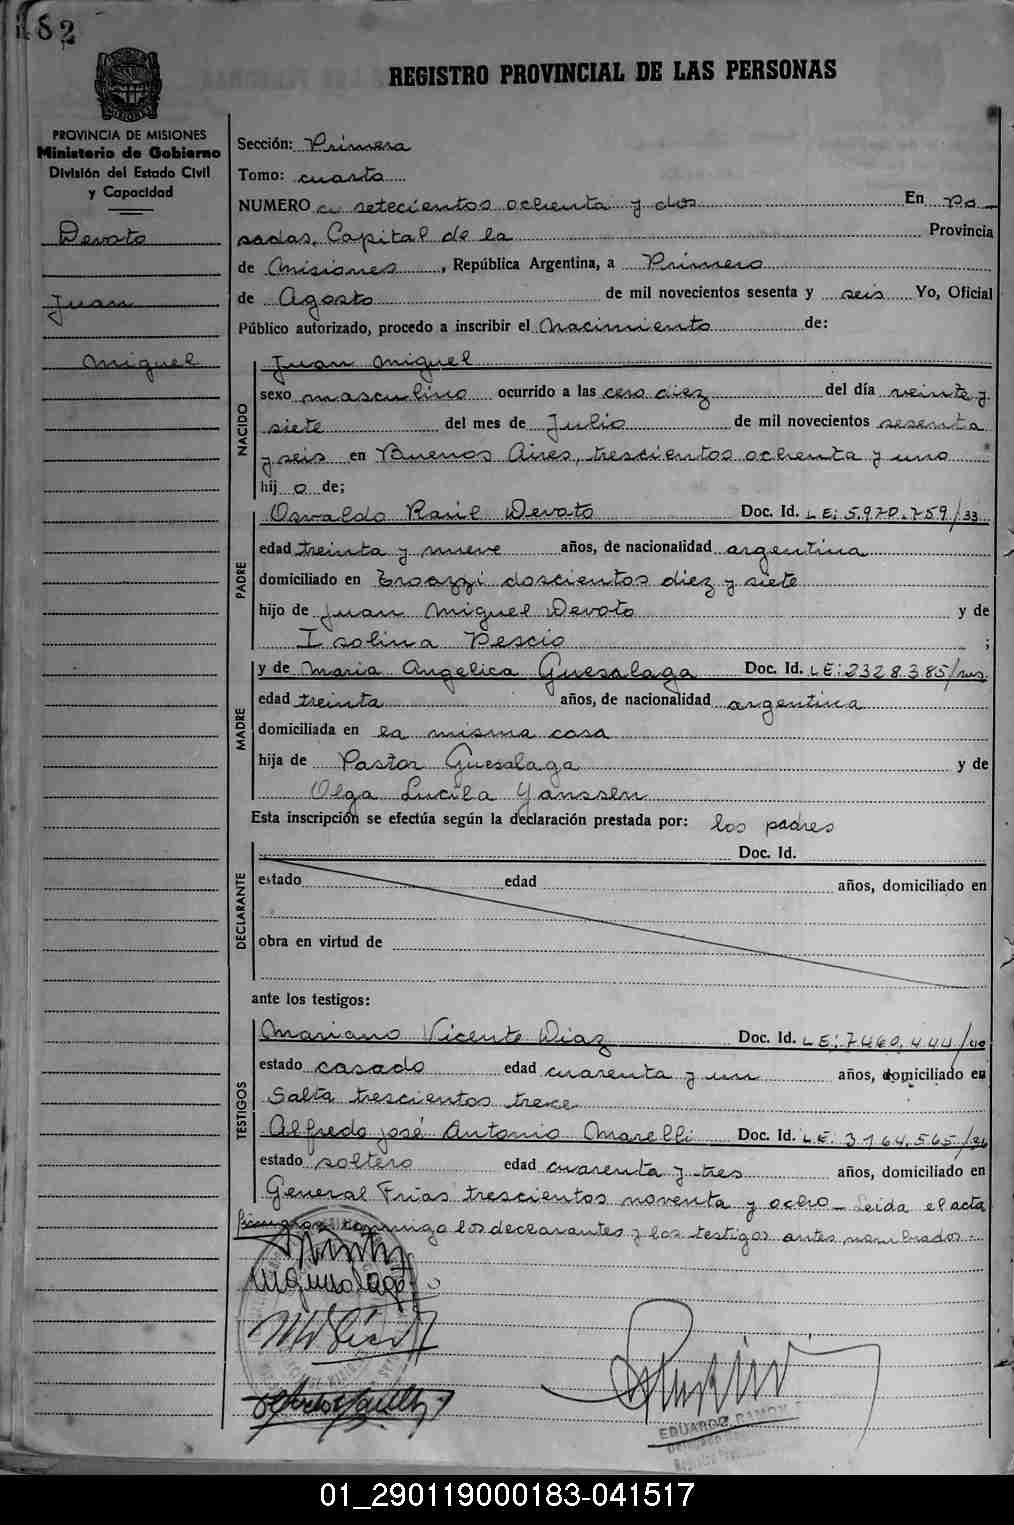 82
REGISTRO PROVINCIAL DE LAS PERSONAS
PROVINCIA DE MISIONES
Ministerio de Gobierno
División del Estado Civil
y Capacidad
Devoto
Juan
Miguel
Sección: Primera
Tomo: cuarto
NUMERO setecientos ochenta y dos En Po-
sadas, Capital de la Provincia
de Misiones, República Argentina, a Primero
de Agosto de mil novecientos sesenta y seis Yo, Oficial
Público autorizado, procedo a inscribir el Nacimiento de:
NACIDO
Juan Miguel
sexo masculino ocurrido a las cero diez del día veinte y
siete del mes de Julio de mil novecientos sesenta
y seis en Buenos Aires, trescientos ochenta y uno
hijo de;
PADRE
Osvaldo Raúl Devoto Doc. Id. L E: 5.970.759/33
edad treinta y nueve años, de nacionalidad argentina
domiciliado en doscientos diez y siete
hijo de Juan Miguel Devoto y de
Isolina Pescio ;
MADRE
y de Maria Angelica Guesalaga Doc. Id. L E: 2328385/
edad treinta años, de nacionalidad argentina
domiciliada en la misma casa
hija de Pastor Guesalaga y de
Olga Lucila Yanssen
Esta inscripción se efectúa según la declaración prestada por: los padres
DECLARANTE
Doc. Id.
estado edad años, domiciliado en
obra en virtud de
ante los testigos:
TESTIGOS
Mariano Vicente Diaz Doc. Id. L E: 7.460.444/40
estado casado edad cuarenta y un años, domiciliado en
Salta trescientos trece
Alfredo José Antonio Marelli Doc. Id. L.E. 3164.565/36
estado soltero edad cuarenta y tres años, domiciliado en
General Frias trescientos noventa y ocho - Leida el acta
firmaron conmigo los declarantes y los testigos antes nombrados.-
EDUARDO RAMON
01_290119000183-041517